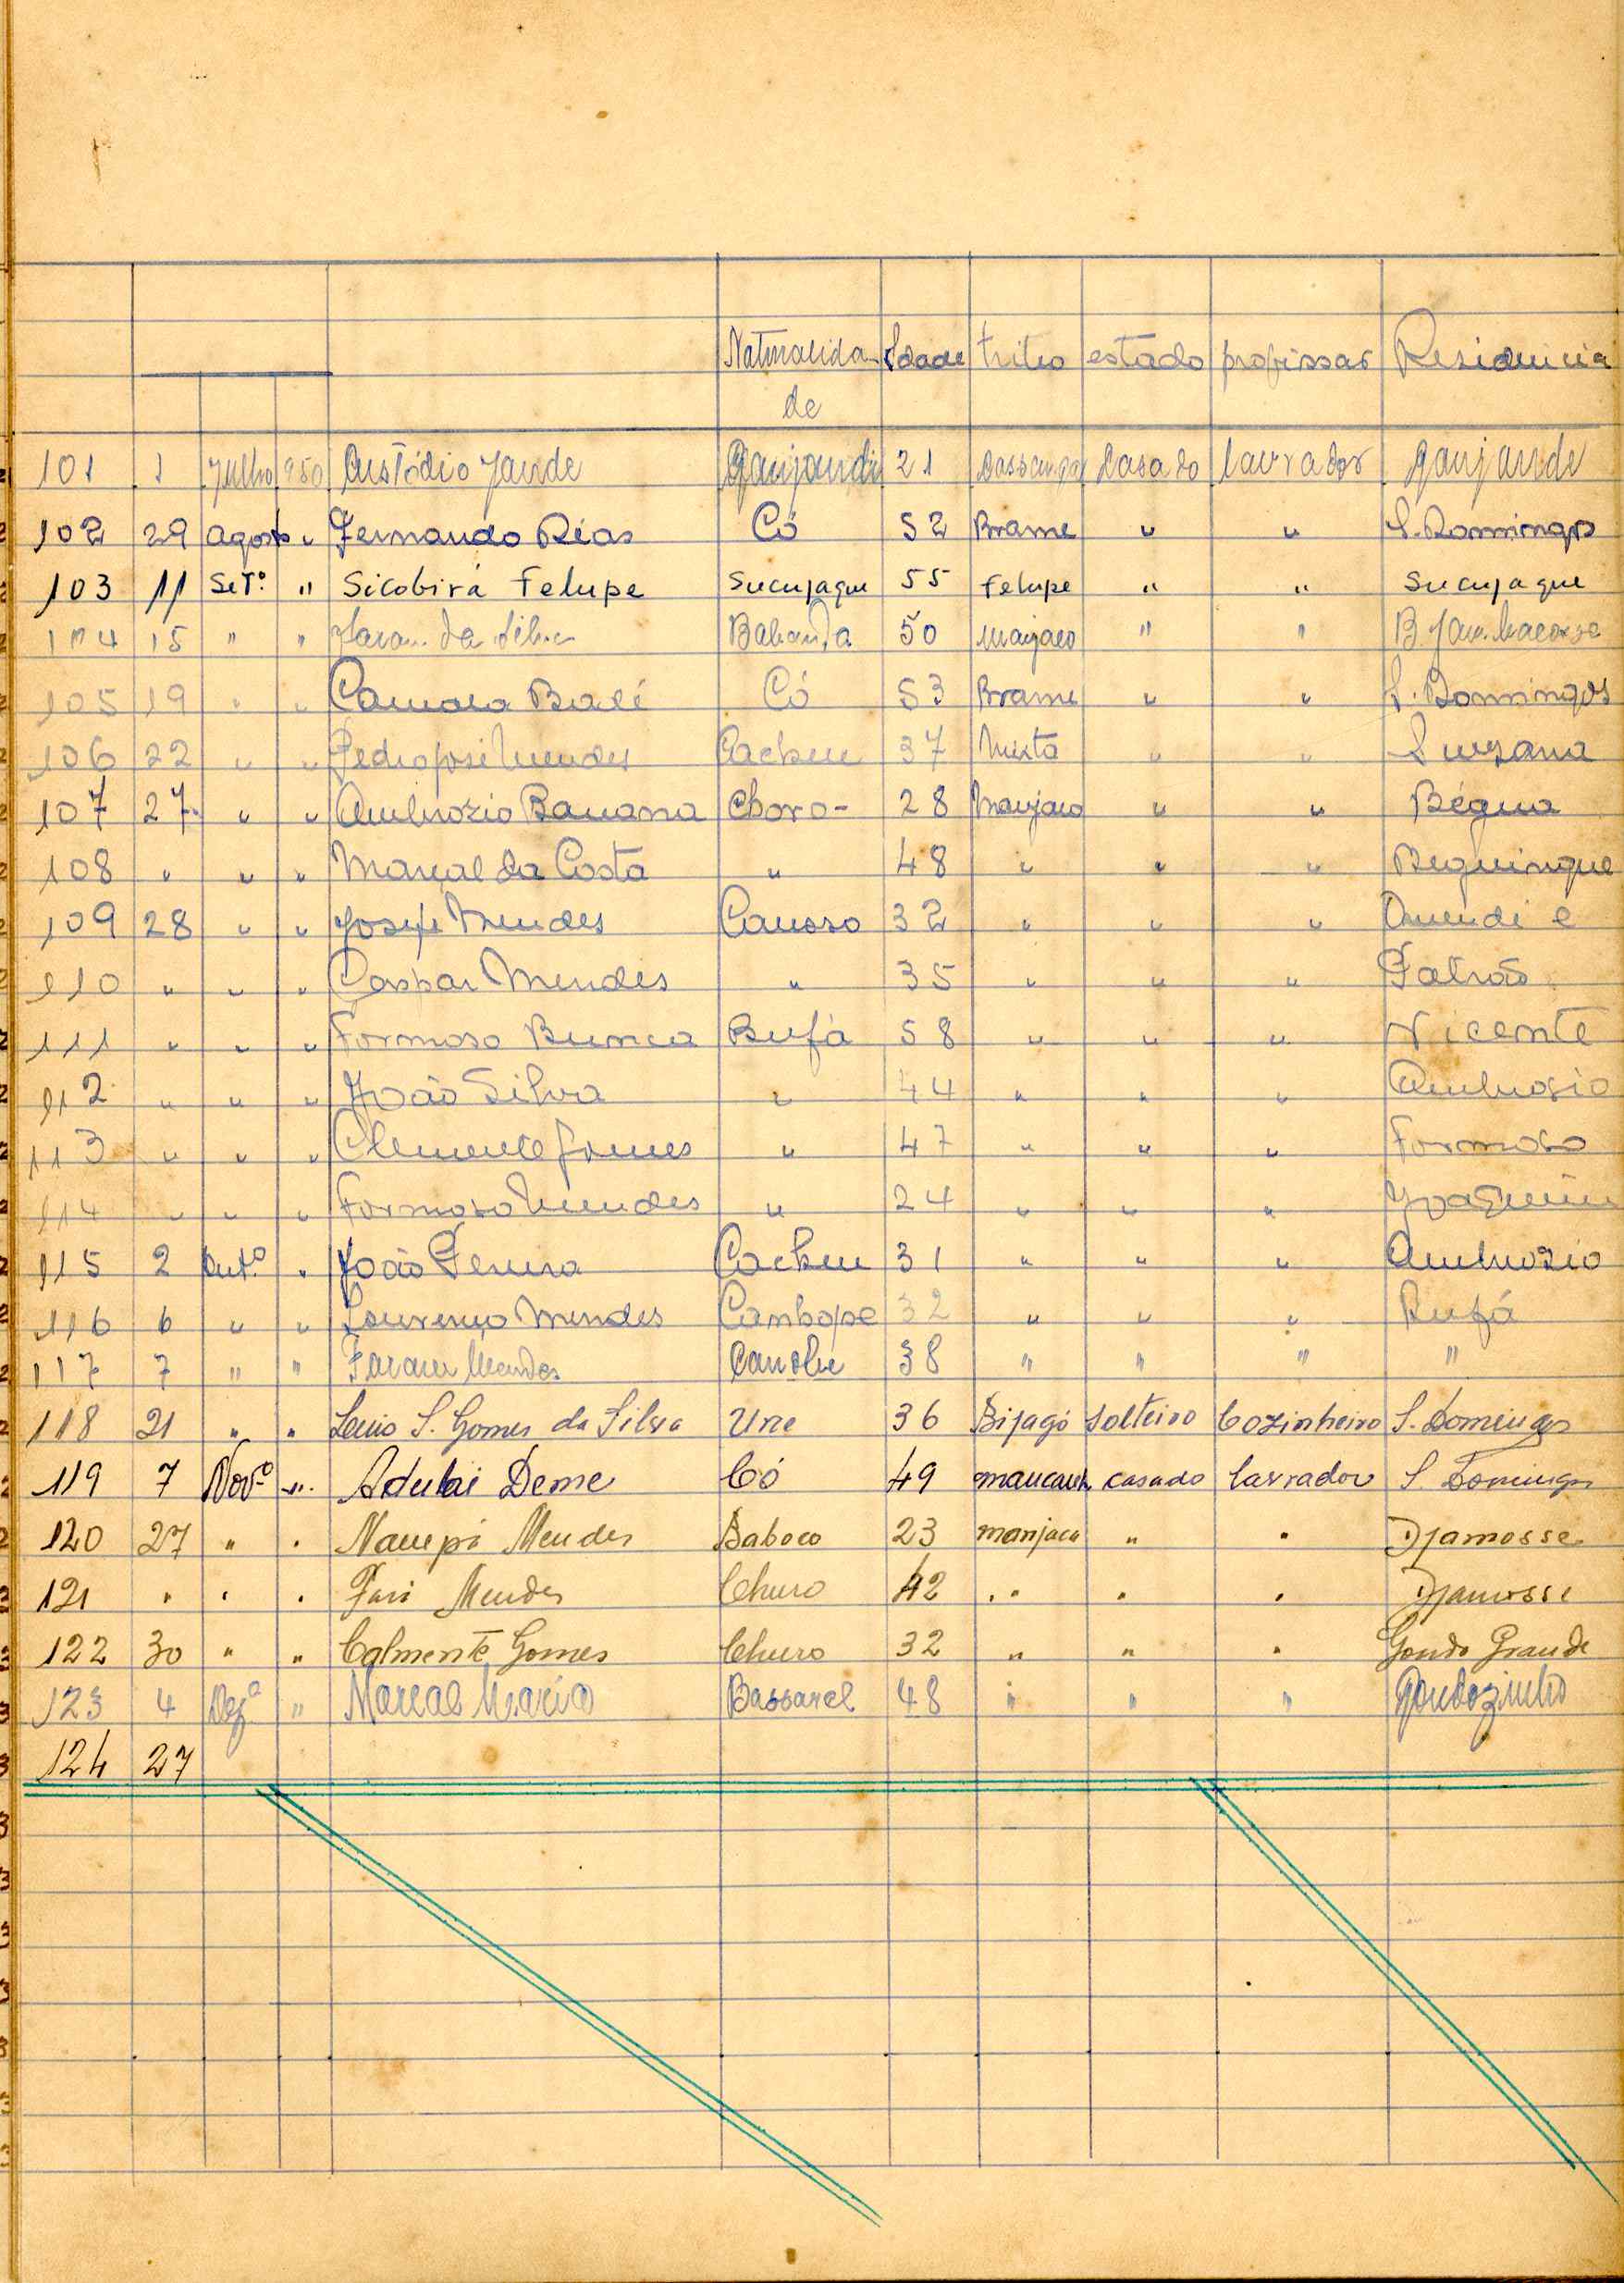 Naturalida- Idade tribo estado profissão Residencia
de
101 1 Julho 950 Custódio Jande Ganjandi 21 Cassanga Casado lavrador Ganjande
102 29 Agosto " Fernando Dias Có 52 Brame " " S. Domingos
103 11 Set.º " Sicobirá Felupe Sucujaque 55 Felupe " " Sucujaque
104 15 " " da Silva Babanda 50 Manjaco " "
105 19 " " Camara Balé Có 53 Brame " " S. Domingos
106 22 " " Pedro José Mendes Cacheu 37 Mixta " " Suzana
107 27 " " Ambrozio Banana Choro- 28 Manjaco " " Bégua
108 " " " Marcal da Costa " 48 " " " Beguingue
109 28 " " José Mendes Canoso 32 " " "
110 " " " Gaspar Mendes " 35 " " " Patrão
111 " " " Formoso Bunca Bufá 58 " " " Vicente
112 " " " João Silva " 44 " " " Ambrosio
113 " " " Clemente Gomes " 47 " " " Formoso
114 " " " Formoso Mendes " 24 " " " Joaquim
115 2 Out.º " João Pereira Cacheu 31 " " " Ambrozio
116 6 " " Lourenço Mendes Canhope 32 " " " Bufá
117 7 " " Mendes Canobe 38 " " " "
118 21 " " Luis S. Gomes da Silva Une 36 Bijagó Solteiro Cozinheiro S. Domingos
119 7 Nov.º " Adulai Deme Có 49 casado lavrador S. Domingos
120 27 " " Naupi Mendes Baboco 23 manjaca " " Djamosse
121 " " " Fari Mendes Churo 42 " " " Djamosse
122 30 " " Calmente Gomes Churo 32 " " " Gondo Grande
123 4 Dez.º " Marcal Maria Bassarel 48 " " " Gondozinho
124 27